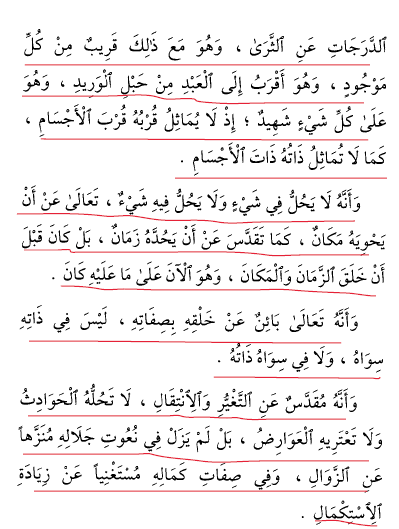 ٱلدَّرَجَاتِ عَنِ ٱلثَّرَىٰ ، وَهُوَ مَعَ ذَٰلِكَ قَرِيبٌ مِنْ كُلِّ
مَوْجُودٍ ، وَهُوَ أَقْرَبُ إِلَى ٱلْعَبْدِ مِنْ حَبْلِ ٱلْوَرِيدِ ، وَهُوَ
عَلَىٰ كُلِّ شَيْءٍ شَهِيدٌ ؛ إِذْ لَا يُمَاثِلُ قُرْبُهُ قُرْبَ ٱلْأَجْسَامِ ،
كَمَا لَا تُمَاثِلُ ذَاتُهُ ذَاتَ ٱلْأَجْسَامِ .
وَأَنَّهُ لَا يَحُلُّ فِي شَيْءٍ وَلَا يَحُلُّ فِيهِ شَيْءٌ ، تَعَالَىٰ عَنْ أَنْ
يَحْوِيَهُ مَكَانٌ ، كَمَا تَقَدَّسَ عَنْ أَنْ يَحُدَّهُ زَمَانٌ ، بَلْ كَانَ قَبْلَ
أَنْ خَلَقَ ٱلزَّمَانَ وَٱلْمَكَانَ ، وَهُوَ ٱلْآنَ عَلَىٰ مَا عَلَيْهِ كَانَ .
وَأَنَّهُ تَعَالَىٰ بَائِنٌ عَنْ خَلْقِهِ بِصِفَاتِهِ ، لَيْسَ فِي ذَاتِهِ
سِوَاهُ ، وَلَا فِي سِوَاهُ ذَاتُهُ .
وَأَنَّهُ مُقَدَّسٌ عَنِ ٱلتَّغَيُّرِ وَٱلِٱنْتِقَالِ ، لَا تَحُلُّهُ ٱلْحَوَادِثُ
وَلَا تَعْتَرِيهِ ٱلْعَوَارِضُ ، بَلْ لَمْ يَزَلْ فِي نُعُوتِ جَلَالِهِ مُنَزَّهاً
عَنِ ٱلزَّوَالِ ، وَفِي صِفَاتِ كَمَالِهِ مُسْتَغْنِياً عَنْ زِيَادَةِ
ٱلِٱسْتِكْمَالِ .